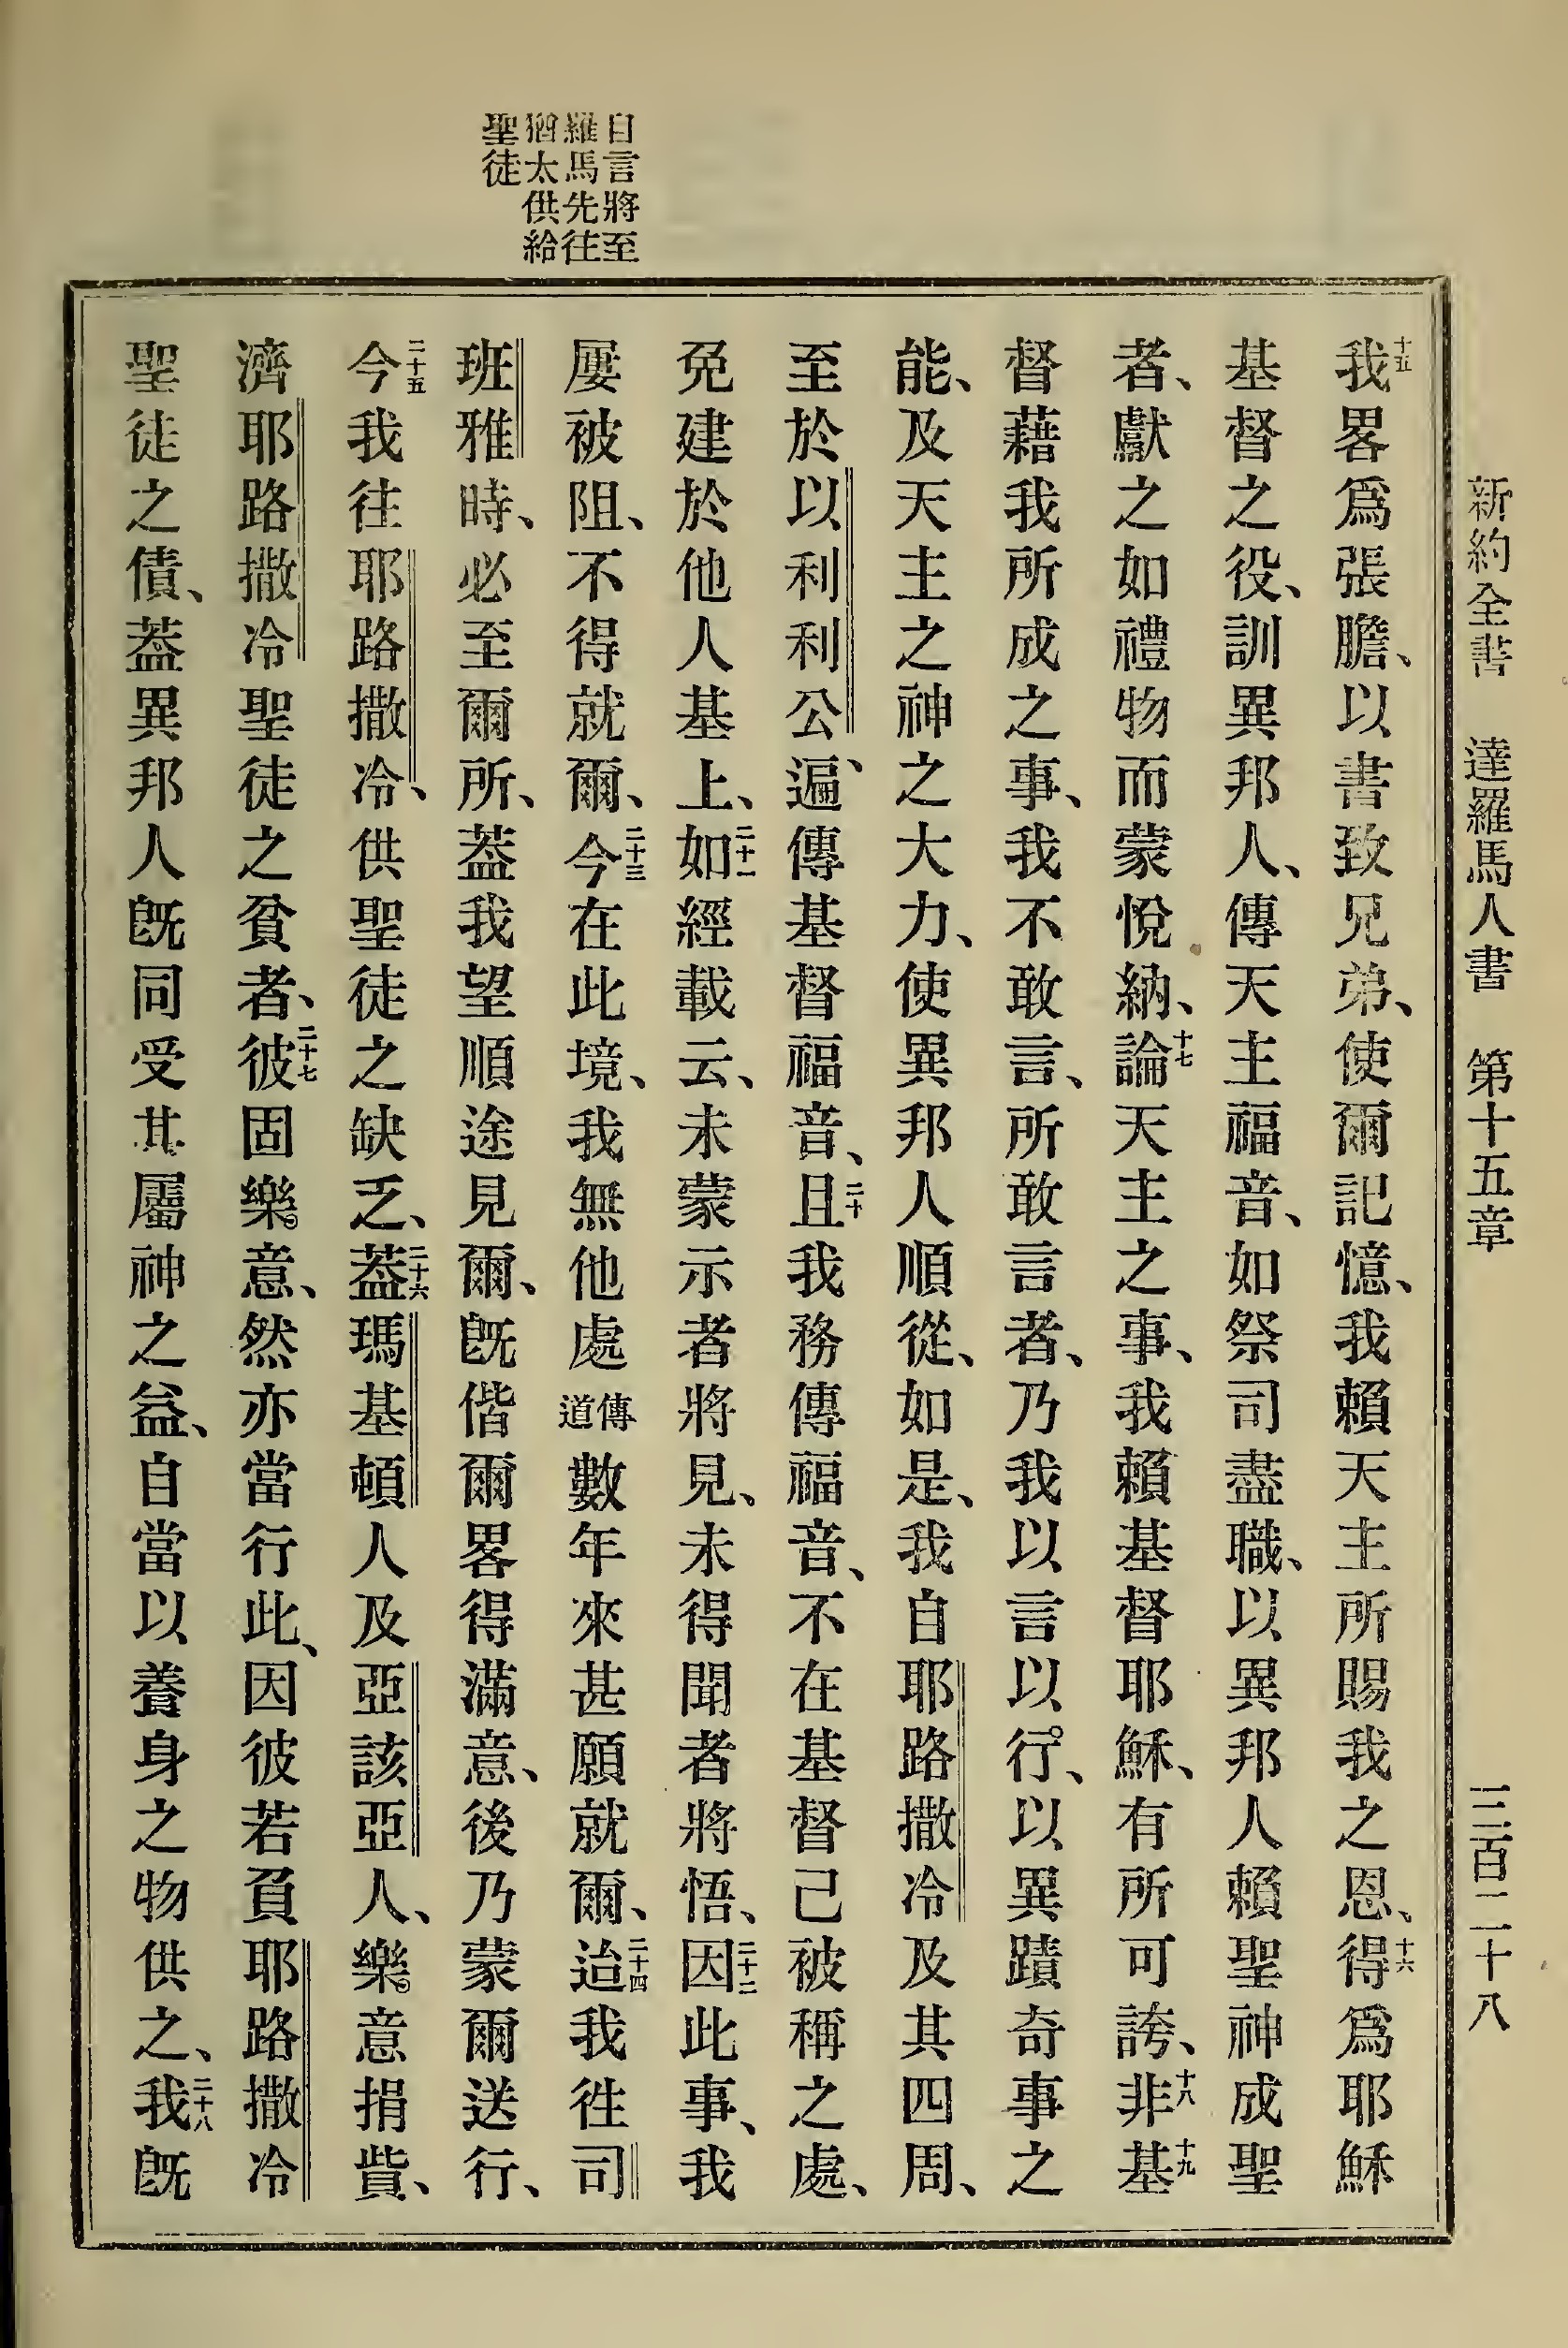 新約全書 達羅馬人書 第十五章 三百二十八
自言將至
羅馬先往
猶太供給
聖徒
十五我畧爲張膽、以書致兄弟、使爾記憶、我賴天主所賜我之恩、十六得爲耶穌
基督之役、訓異邦人、傳天主福音、如祭司盡職、以異邦人賴聖神成聖
者、獻之如禮物而蒙悅納、十七論天主之事、我賴基督耶穌、有所可誇、十八非十九基
督藉我所成之事、我不敢言、所敢言者、乃我以言以行、以異蹟奇事之
能、及天主之神之大力、使異邦人順從、如是、我自耶路撒冷及其四周、
至於以利利公、遍傳基督福音、二十且我務傳福音、不在基督己被稱之處、
免建於他人基上、二十一如經載云、未蒙示者將見、未得聞者將悟、二十二因此事、我
屢被阻、不得就爾、二十三今在此境、我無他處傳道數年來甚願就爾、二十四迨我徃司
班雅時、必至爾所、葢我望順途見爾、旣偕爾畧得滿意、後乃蒙爾送行、
二十五今我往耶路撒冷、供聖徒之缺乏、二十六葢瑪基頓人及亞該亞人、樂意捐貲、
濟耶路撒冷聖徒之貧者、二十七彼固樂意、然亦當行此、因彼若負耶路撒冷
聖徒之債、葢異邦人旣同受其屬神之益、自當以養身之物供之、二十八我旣